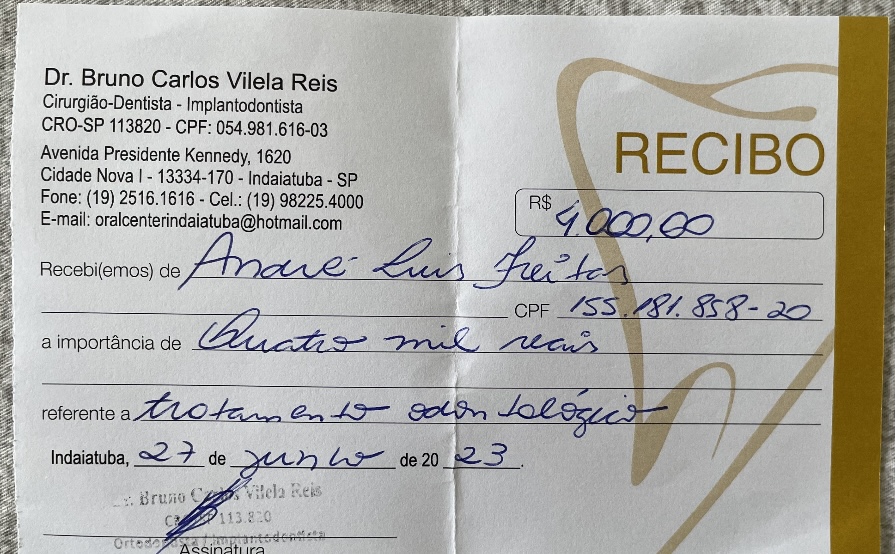 Dr. Bruno Carlos Vilela Reis
Cirurgião-Dentista - Implantodontista
CRO-SP 113820 - CPF: 054.981.616-03
Avenida Presidente Kennedy, 1620
Cidade Nova I - 13334-170 - Indaiatuba - SP
Fone: (19) 2516.1616 - Cel.: (19) 98225.4000
E-mail: oralcenterindaiatuba@hotmail.com
RECIBO
R$ 4.000,00
Recebi(emos) de André Luis Freitas
CPF 155.181.858-20
a importância de Quatro mil reais
referente a tratamento odontológico
Indaiatuba, 27 de junho de 20 23.
Dr. Bruno Carlos Vilela Reis
113.820
Ortodontista / Implantodontista
Assinatura